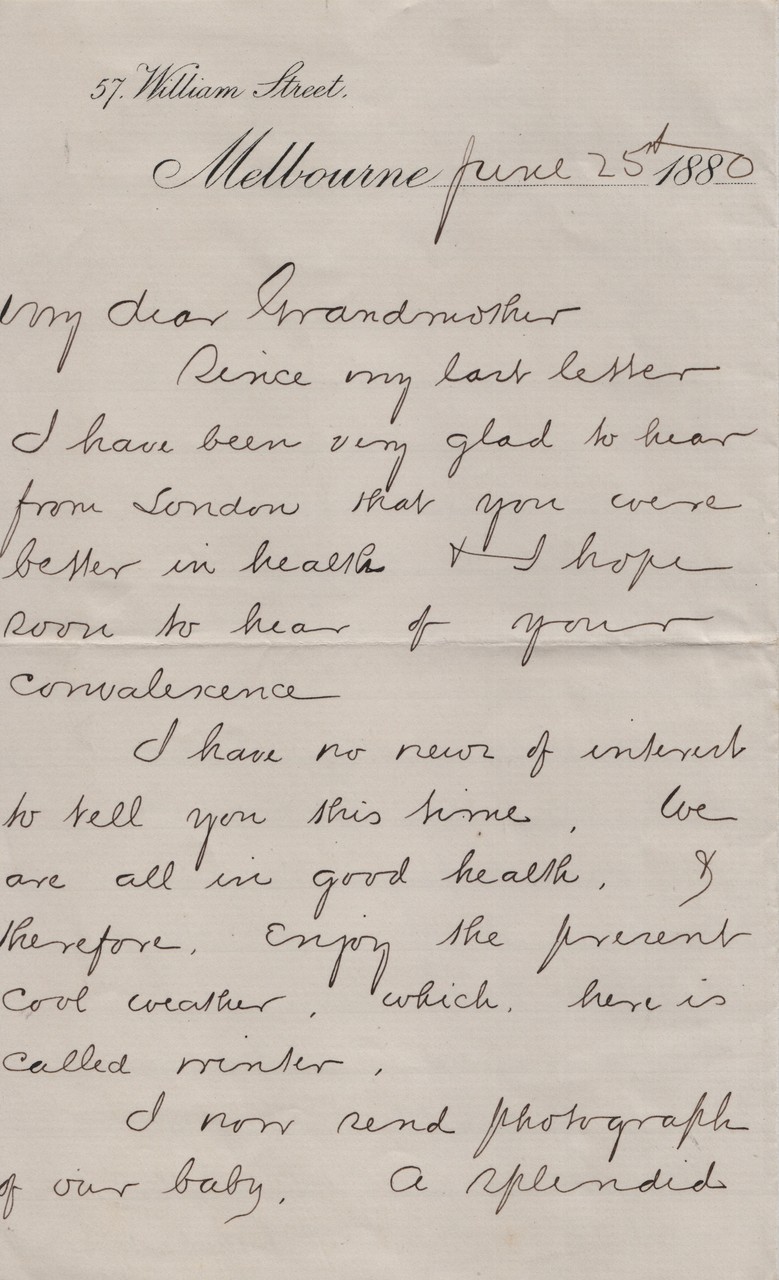 57. William Street.
Melbourne June 25st 1880
My dear Grandmother
Since my last letter
I have been very glad to hear
from London that you were
better in health & I hope
soon to hear of your
convalescence
I have no news of interest
to tell you this time, We
are all in good health, &
therefore, Enjoy the present
cool weather, which, here is
called winter,
I now send photograph
of our baby, A splendid